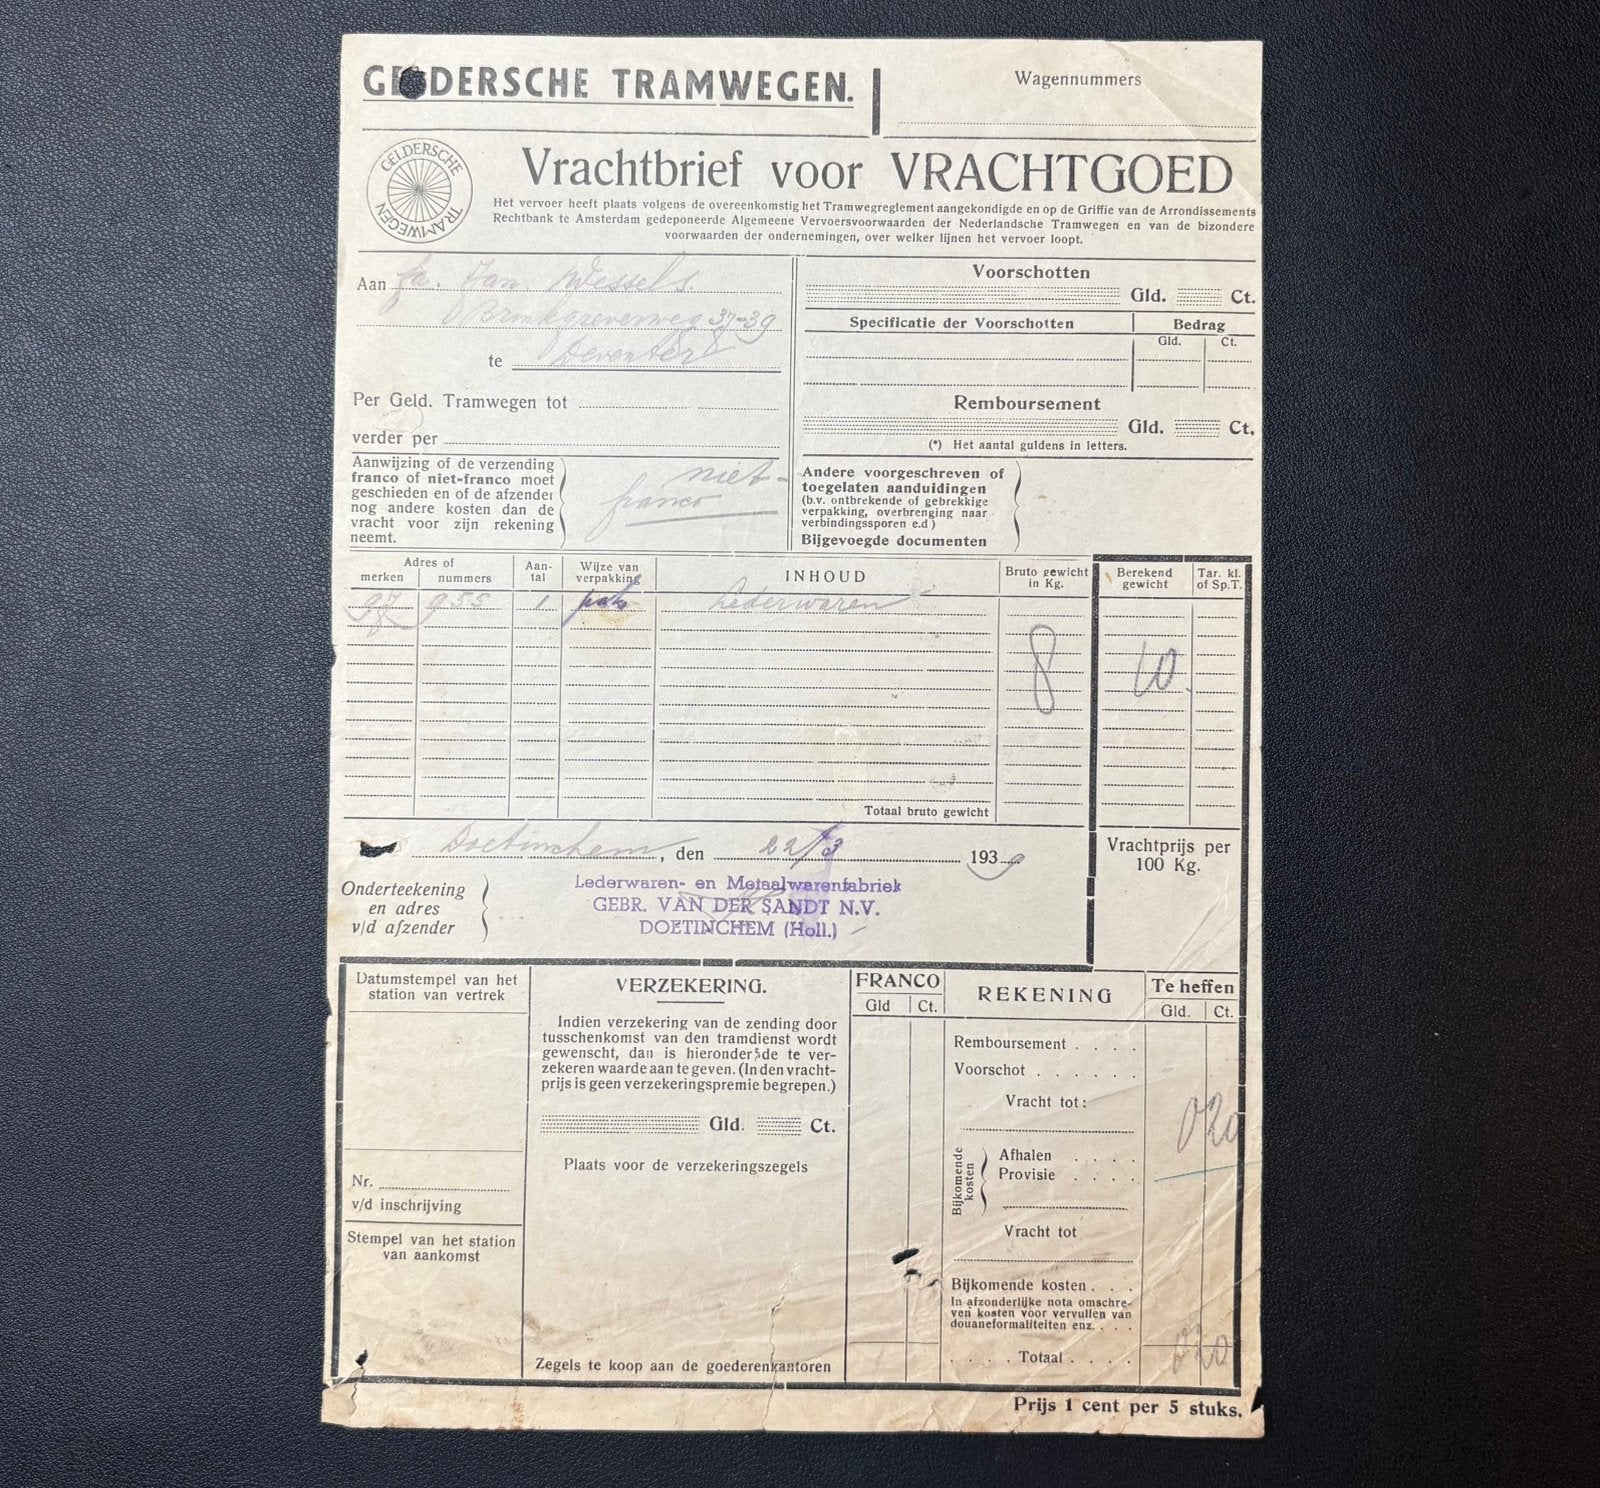 GELDERSCHE TRAMWEGEN.
Wagennummers
GELDERSCHE TRAMWEGEN
Vrachtbrief voor VRACHTGOED
Het vervoer heeft plaats volgens de overeenkomstig het Tramwegreglement aangekondigde en op de Griffie van de Arrondissements
Rechtbank te Amsterdam gedeponeerde Algemeene Vervoersvoorwaarden der Nederlandsche Tramwegen en van de bizondere
voorwaarden der ondernemingen, over welker lijnen het vervoer loopt.
Aan fa. Jan. Wessels.
Brinkgreverweg 37-39
te Deventer
Per Geld. Tramwegen tot
verder per
Aanwijzing of de verzending
franco of niet-franco moet
geschieden en of de afzender
nog andere kosten dan de
vracht voor zijn rekening
neemt.
niet-
franco
Voorschotten
Gld. Ct.
Specificatie der Voorschotten Bedrag
Gld. Ct.
Remboursement
Gld. Ct.
(*) Het aantal guldens in letters.
Andere voorgeschreven of
toegelaten aanduidingen
(b.v. ontbrekende of gebrekkige
verpakking, overbrenging naar
verbindingssporen e.d)
Bijgevoegde documenten
Adres of
merken nummers
Aan-
tal
Wijze van
verpakking
INHOUD
Bruto gewicht
in Kg.
Berekend
gewicht
Tar. kl.
of Sp.T.
955 1 pak Lederwaren
8 10
Totaal bruto gewicht
Doetinchem, den 22/3 1939
Vrachtprijs per
100 Kg.
Onderteekening
en adres
v/d afzender
Lederwaren- en Metaalwarenfabriek
GEBR. VAN DER SANDT N.V.
DOETINCHEM (Holl.)
Datumstempel van het
station van vertrek
Nr.
v/d inschrijving
Stempel van het station
van aankomst
VERZEKERING.
Indien verzekering van de zending door
tusschenkomst van den tramdienst wordt
gewenscht, dan is hieronder de te ver-
zekeren waarde aan te geven. (In den vracht-
prijs is geen verzekeringspremie begrepen.)
Gld. Ct.
Plaats voor de verzekeringszegels
Zegels te koop aan de goederenkantoren
FRANCO
Gld Ct.
REKENING
Te heffen
Gld. Ct.
Remboursement . . . .
Voorschot . . . . . .
Vracht tot:
020
Bijkomende
kosten
Afhalen . . . .
Provisie . . . .
Vracht tot
Bijkomende kosten . . .
In afzonderlijke nota omschre-
ven kosten voor vervullen van
douaneformaliteiten enz. . . .
. . . . Totaal . . . . 020
Prijs 1 cent per 5 stuks.